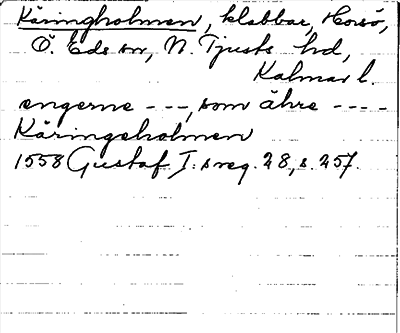 Käringholmen, klabbar, Horsö,
Ö. Eds sn, N. Tjusts hd,
Kalmar l.
engerne ---, som ähre ----
Käringeholmen
1558 Gustaf I:s reg. 28, s. 257.